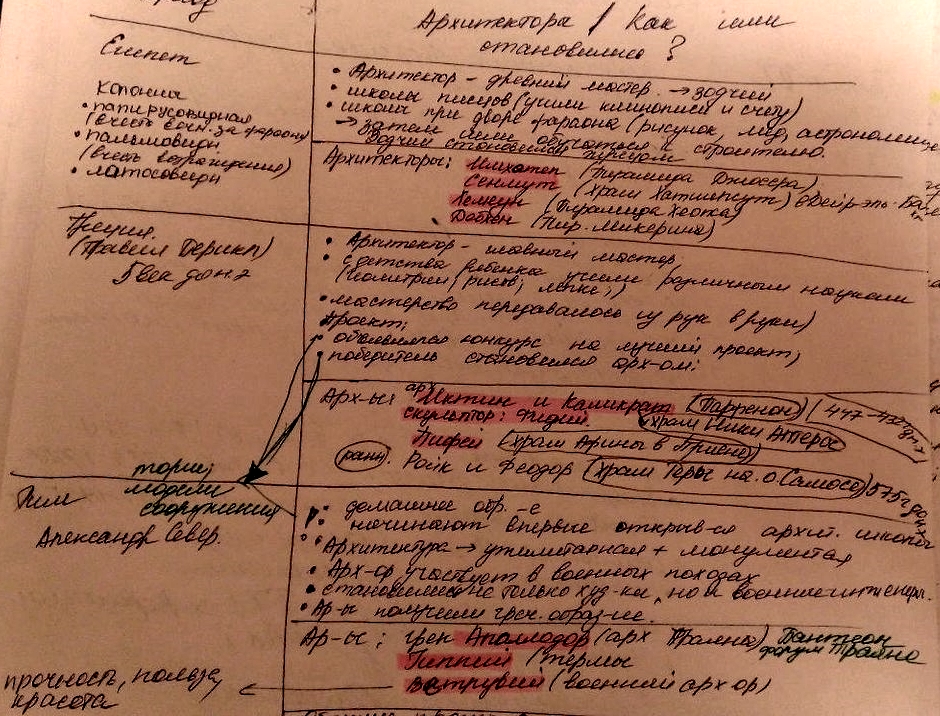 Архитектора / Как ими
становились?
Египет
колонны
• папирусовидная
• пальмовидн
(в честь возрождения)
• лотосовидн
• Архитектор - древний мастер. → зодчий
• школы писцов (учили клинописи и счету)
• школы при дворе фараона (рисунок, мед, астрономия
→ затем шли обучаться к строителю.
Архитекторы: Имхотеп (Пирамида Джосера)
Сенмут (Храм Хатшепсут) в Дейр-эль-Бахе
Хемиун (Пирамида Хеопса)
Дебхен (Пир. Микерина)
Греция.
(Правил Перикл)
5 век до н э
• Архитектор - главный мастер
• с детства ребенка учили различным наукам
(геометрии, рисов, лепке,)
• мастерство передавалось из рук в руки)
Проект:
• объявлялся конкурс на лучший проект,
• победитель становился арх-ом:
Арх-ы: арх Иктин и Каликрат (Парфенон) / 447-
скульптор: Фидий. храм Ники Аптерос
Пифей (храм Афины в Приене)
ранн. Ройк и Феодор (храм Геры на о. Самосе) 575 г до н э
модели
сооружения
Рим
Александр Север.
• домашнее обр.-е
• начинают впервые открыв-ся архит. школы
• Архитектура → утилитарная + монументал
• Арх-ор участвует в военных походах
• становились не только худ-ки, но и военные инженеры.
• Ар-ы получили греч. образ-ие.
Ар-ы: грек Аполлодор (арх Траяна) Пантеон
форум Траяна
(термы
Витрувий (военный арх-ор)
прочность, польза,
красота